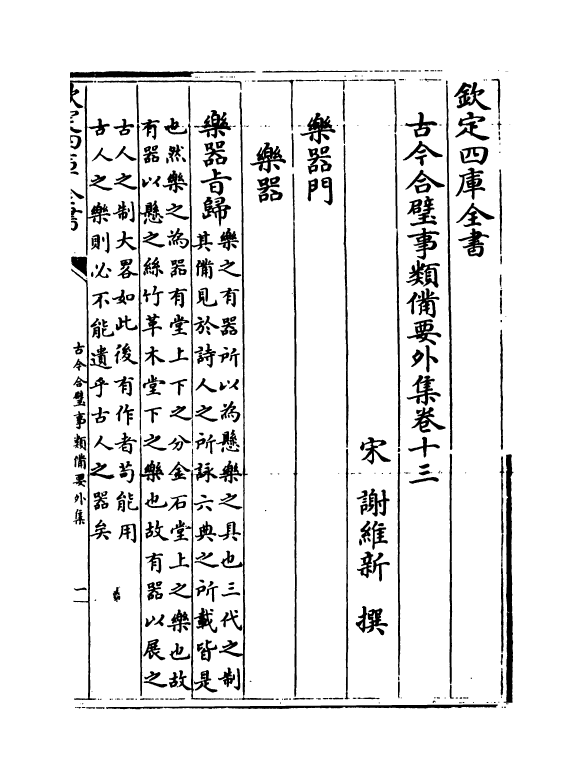 欽定四庫全書
古今合璧事類備要外集卷十三
宋 謝維新 撰
樂器門
樂器
樂器旨歸 樂之有器所以為懸樂之具也三代之制
其備見於詩人之所詠六典之所載皆是
也然樂之為器有堂上下之分金石堂上之樂也故
有器以懸之絲竹革木堂下之樂也故有器以展之
古人之制大畧如此後有作者苟能用
古人之樂則必不能遺乎古人之器矣
欽定四庫全書
古今合璧事類備要外集
一